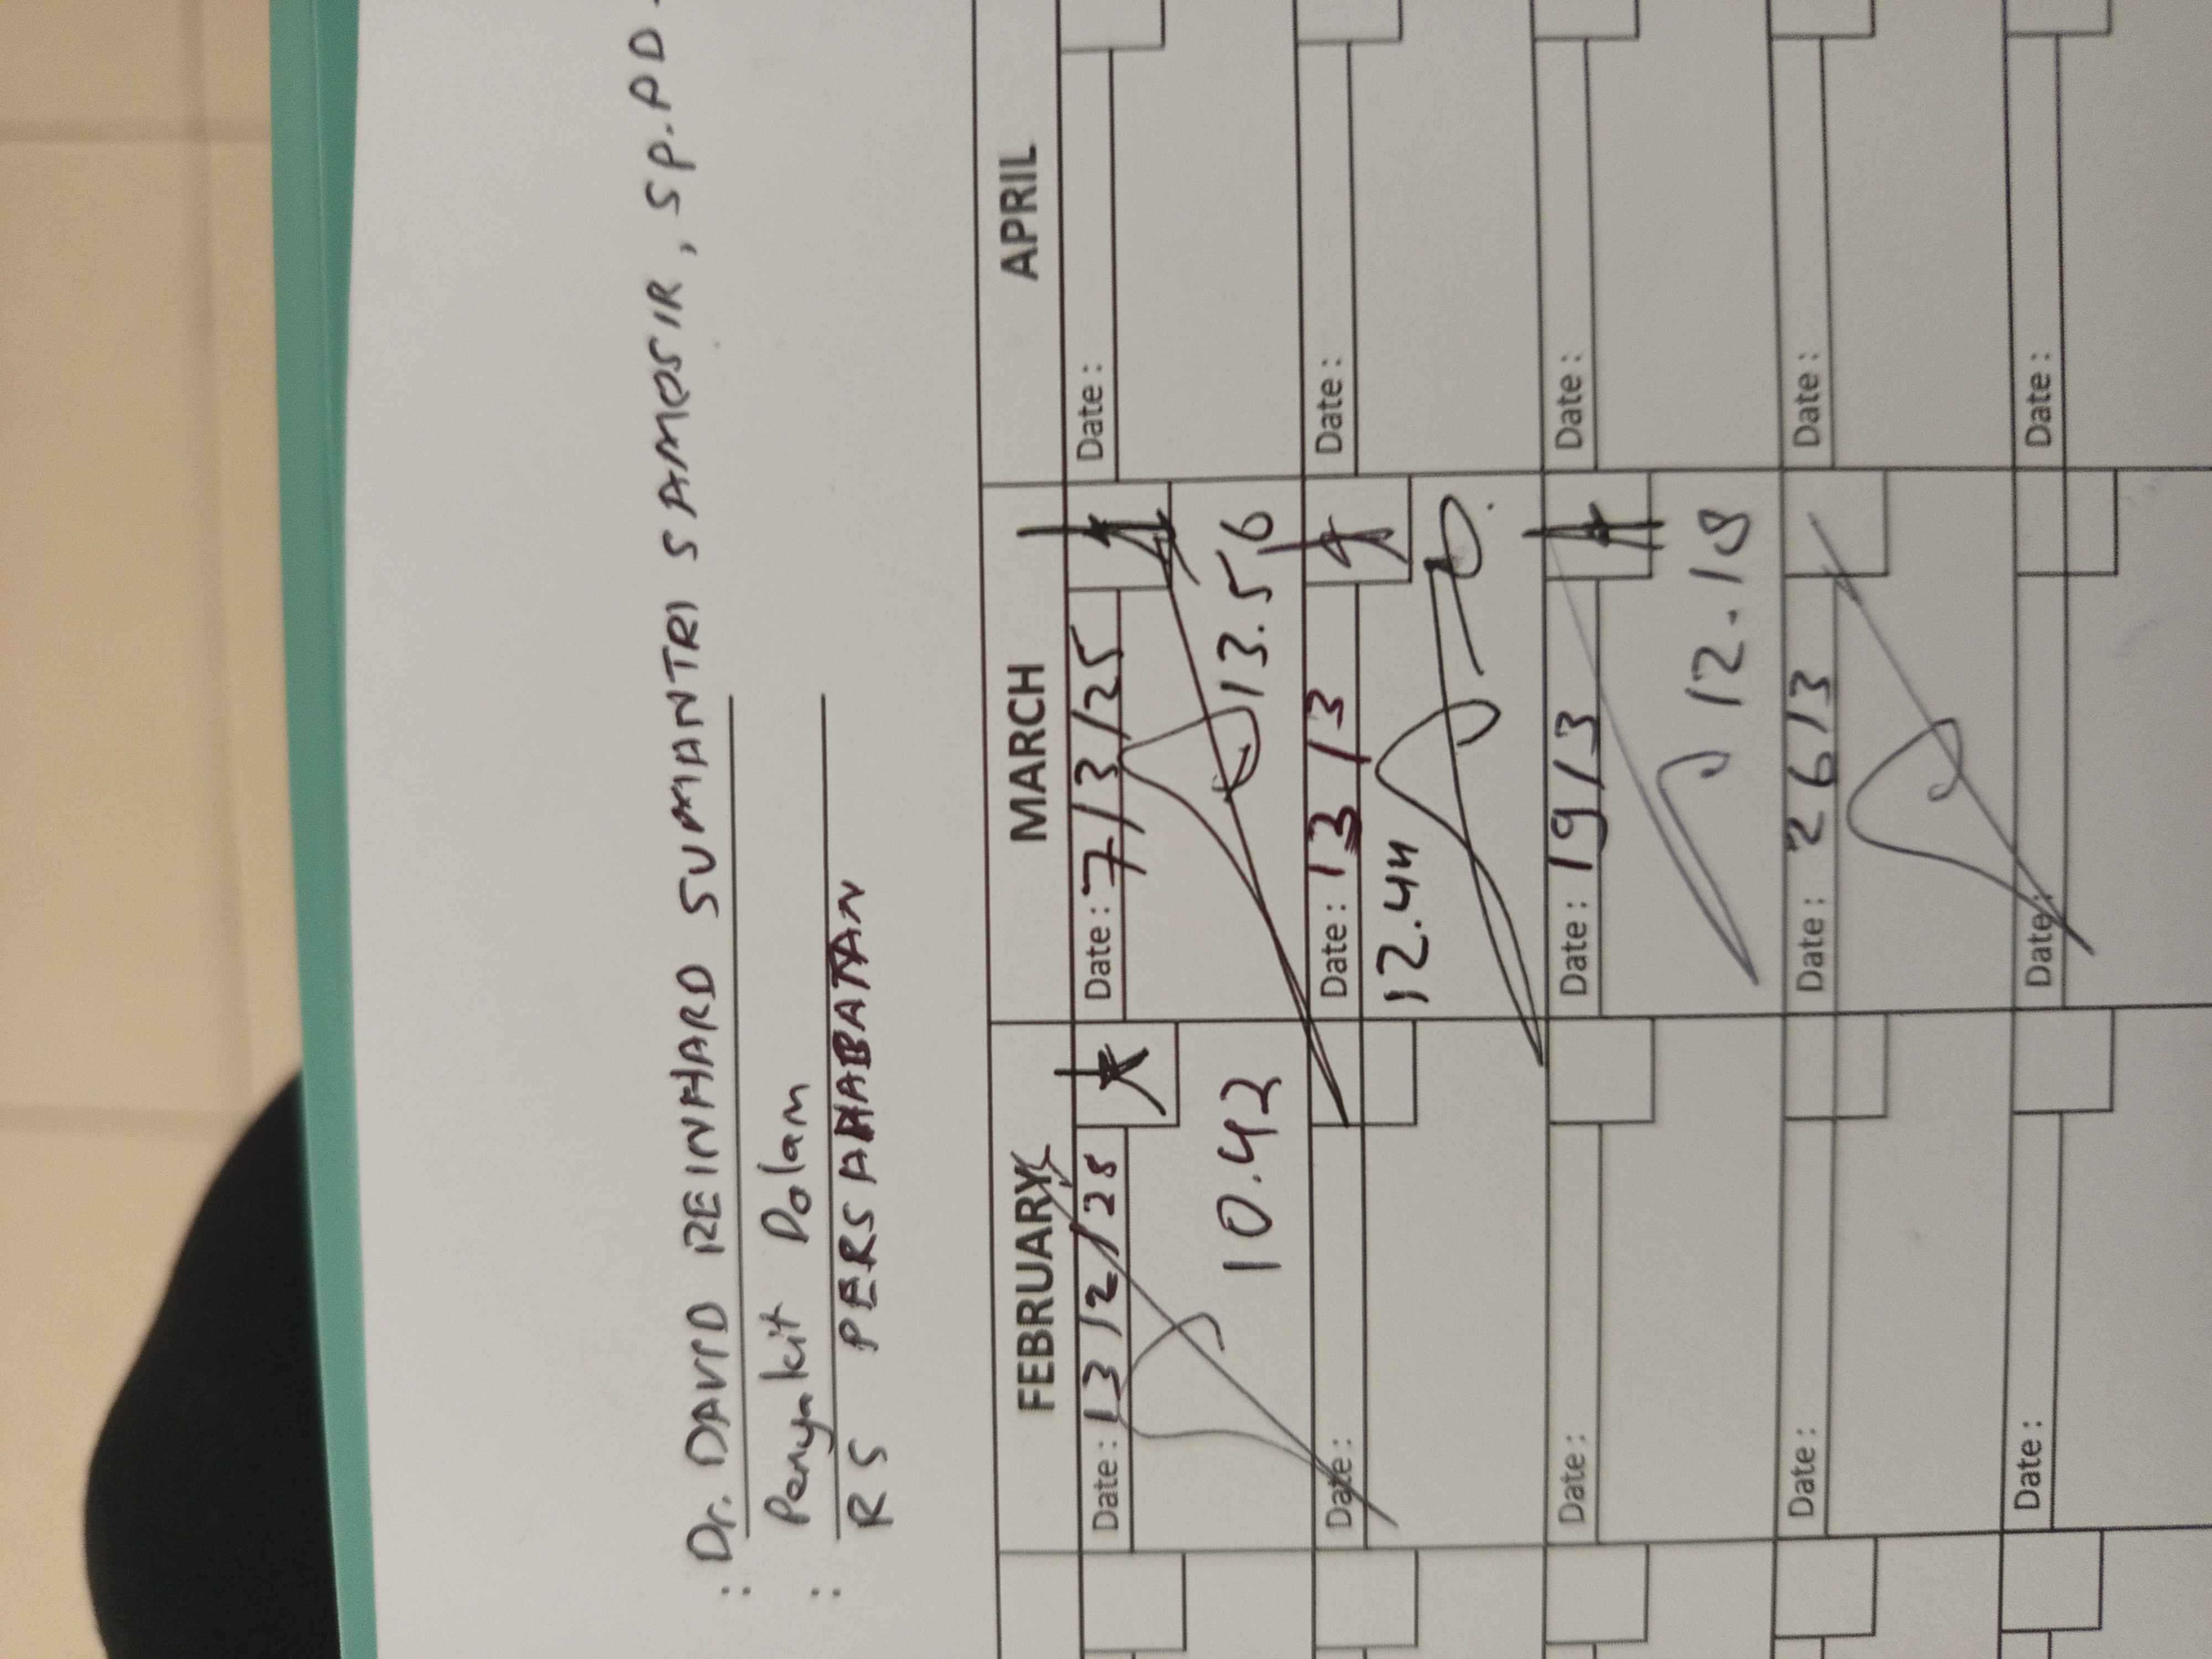 : Dr. DAVID REINHARD SUMANTRI SAMOSIR, Sp.PD.
Penyakit Dalam
: RS PERSAHABATAN
FEBRUARY MARCH APRIL
Date: 13/2/25 Date: 7/3/25 Date:
10.42 13.56
Date: Date: 13/3 Date:
12.44
Date: Date: 19/3 Date:
12.18
Date: Date: 26/3 Date:
Date: Date: Date: